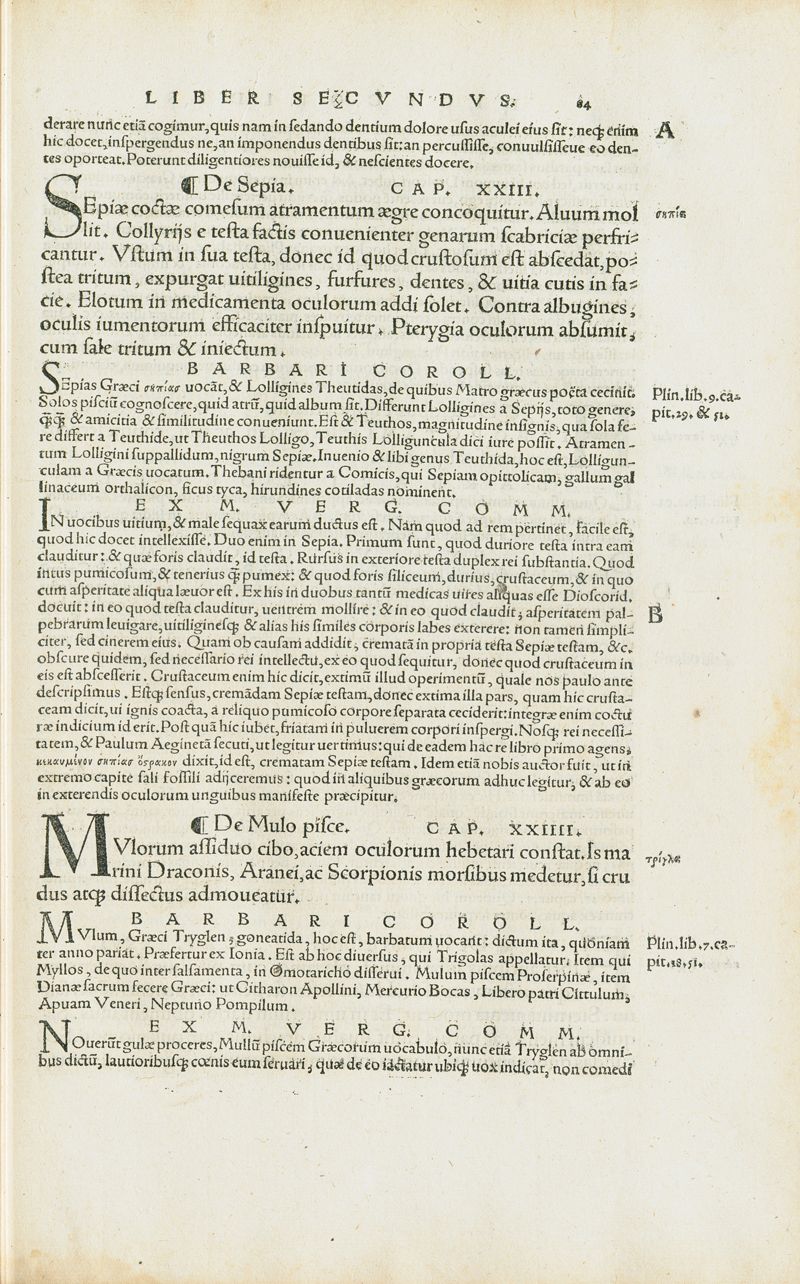 LIBER SECVNDVS. 84
derare nunc etiã cogimur, quis nam in sedando dentium dolore usus aculei eius sit: neq; enim A
hic docet, inspergendus ne, an imponendus dentibus sit: an percussisse, conuulsisseue eo den-
tes oporteat. Poterunt diligentiores nouisse id, & nescientes docere.
¶ De Sepia. CAP. XXIII.
SEpiæ coctæ comesum atramentum ægre concoquitur. Aluum mol σηπία
lit. Collyrijs e testa factis conuenienter genarum scabriciæ perfri-
cantur. Vstum in sua testa, donec id quod crustosum est abscedat, po-
stea tritum, expurgat uitiligines, furfures, dentes, & uitia cutis in fa-
cie. Elotum in medicamenta oculorum addi solet. Contra albugines,
oculis iumentorum efficaciter inspuitur. Pterygia oculorum absumit,
cum sale tritum & iniectum.
BARBARI COROLL.
SEpias Græci σηπίας uocãt, & Lolligines Theutidas, de quibus Matro græcus poëta cecinit: Plin. lib. 9. ca-
Solos pisciũ cognoscere, quid atrũ, quid album sit. Differunt Lolligines a Sepijs, toto genere, pit. 29. & 51.
q̃q̃ & amicitia & similitudine conueniunt. Est & Teuthos, magnitudine insignis, qua sola fe-
re differt a Teuthide, ut Theuthos Lolligo, Teuthis Lolliguncula dici iure possit. Atramen-
tum Lolligini suppallidum, nigrum Sepiæ. Inuenio & libi genus Teuthida, hoc est, Lolligun-
culam a Græcis uocatum. Thebani ridentur a Comicis, qui Sepiam opittolicam, gallum gal
linaceum orthalicon, ficus tyca, hirundines cotiladas nominent.
EXM. VERG. COMM.
IN uocibus uitium, & male sequax earum ductus est. Nam quod ad rem pertinet, facile est,
quod hic docet intellexisse. Duo enim in Sepia. Primum sunt, quod duriore testa intra eam
clauditur: & quæ foris claudit, id testa. Rursus in exteriore testa duplex rei substantia. Quod
intus pumicosum, & tenerius q̃ pumex: & quod foris siliceum, durius, crustaceum, & in quo
cum asperitate aliqua læuor est. Ex his in duobus tantũ medicas uires aliquas esse Dioscorid.
docuit: in eo quod testa clauditur, uentrem mollire: & in eo quod claudit, asperitatem pal- B
pebrarum leuigare, uitiliginesq; & alias his similes corporis labes exterere: non tamen simpli-
citer, sed cinerem eius. Quam ob causam addidit, crematã in propria testa Sepiæ testam, &c.
obscure quidem, sed necessario rei intellectu, ex eo quod sequitur, donec quod crustaceum in
eis est abscesserit. Crustaceum enim hic dicit, extimũ illud operimentũ, quale nos paulo ante
descripsimus. Estq; sensus, cremãdam Sepiæ testam, donec extima illa pars, quam hic crusta-
ceam dicit, ui ignis coacta, a reliquo pumicoso corpore separata ceciderit: integræ enim coctu
ræ indicium id erit. Post quã hic iubet, friatam in puluerem corpori inspergi. Nosq; rei necessi-
tatem, & Paulum Aeginetã secuti, ut legitur uertimus: qui de eadem hac re libro primo agens,
κεκαυμένον σηπίας ὄστρακον dixit, id est, crematam Sepiæ testam. Idem etiã nobis auctor fuit, ut in
extremo capite sali fossili adijceremus: quod in aliquibus græcorum adhuc legitur, & ab eo
in exterendis oculorum unguibus manifeste præcipitur.
¶ De Mulo pisce. CAP. XXIIII.
MVlorum assiduo cibo, aciem oculorum hebetari constat. Is ma τρίγλα
rini Draconis, Aranei, ac Scorpionis morsibus medetur, si cru
dus atq; dissectus admoueatur.
BARBARI COROLL.
MVlum, Græci Tryglen, goneatida, hoc est, barbatum uocant: dictum ita, quoniam Plin. lib. 7. ca-
ter anno pariat. Præfertur ex Ionia. Est ab hoc diuersus, qui Trigolas appellatur. Item qui pit. 18. 51.
Myllos, de quo inter salsamenta, in Omotaricho disserui. Mulum piscem Proserpinæ, item
Dianæ sacrum fecere Græci: ut Citharon Apollini, Mercurio Bocas, Libero patri Cittulum,
Apuam Veneri, Neptuno Pompilum.
EXM. VERG. COMM.
NOuerũt gulæ proceres, Mullũ piscem Græcorum uocabulo, nunc etiã Tryglen ab omni-
bus dictũ, lautioribusq; cœnis eum seruari, quæ de eo iactatur ubiq; uox indicat, non comedi